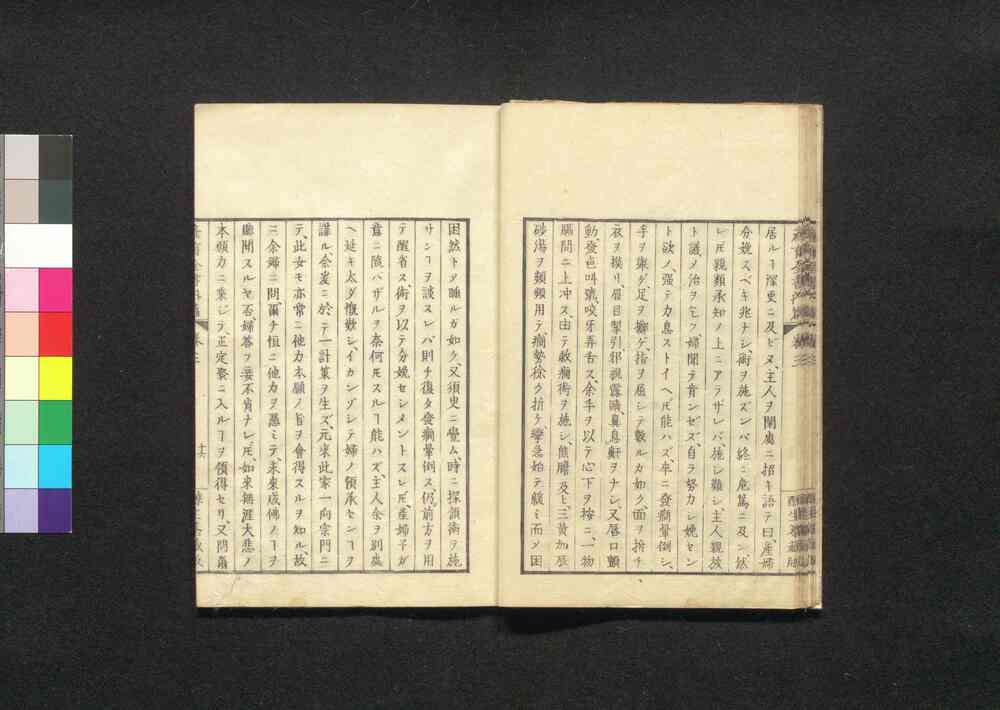 居ルヿ深更ニ及ヒヌ、主人ヲ閑處ニ招キ語テ曰、産婦
分娩スベキ兆ナシ、術ヲ施ズンバ終ニ危篤ニ及ン、然
レ𪜈親類承知ノ上ニアラザレバ、施シ難シ、主人親族
ト議メ治ヲ乞フ、婦聞テ肯ンゼズ、自ラ努力シ娩セン
ト欲ノ、強テ力息ストイヘ𪜈能ハズ、卒ニ發癇暈倒シ、
手ヲ擧ゲ足ヲ擲ゲ、指ヲ屈シテ數ルカ如ク、面ヲ拚チ
衣ヲ摸リ、眉目掣引邪視露睛、鼻息鼾ヲナシ、又唇口顫
動發色叫號、咬牙弄舌ス、余手ヲ以テ心下ヲ按ニ、一物
膈間ニ上冲ス、由テ救癇術ヲ施シ、熊膽及ヒ三黄加辰
砂湯ヲ頻頻用テ、癇勢徐ク折ケ攣急始テ緩ミ而メ困
困然トメ睡ルガ如ク、又須史ニ覺ム、時ニ探頷術ヲ施
サンヿヲ談スレバ則チ復タ發癇暈倒ス、仍前方ヲ用
テ醒省ス、術ヲ以テ分娩セシメントスレ𪜈、産婦子ガ
意ニ隨ハザルヲ奈何𪜈スルヿ能ハズ、主人余ヲ別處
ヘ延キ太ダ慨歎シ、イカンゾシテ婦ノ領承センヿヲ
謀ル余爰ニ於テ一計策ヲ生ズ、元来此家一向宗門ニ
テ、此女モ亦常ニ他力本願ノ旨ヲ會得スルヲ知ル故
ニ余婦ニ問、爾チ恒ニ他力ヲ憑ミテ、未來成佛ノヿヲ
聽聞スルヤ否、婦答ヲ妾不肖ナレ𪜈、如來無涯大悲ノ
本願力ニ乗シテ、正定聚ニ入ルヿヲ領得セリ、又問爾
卷三
十六